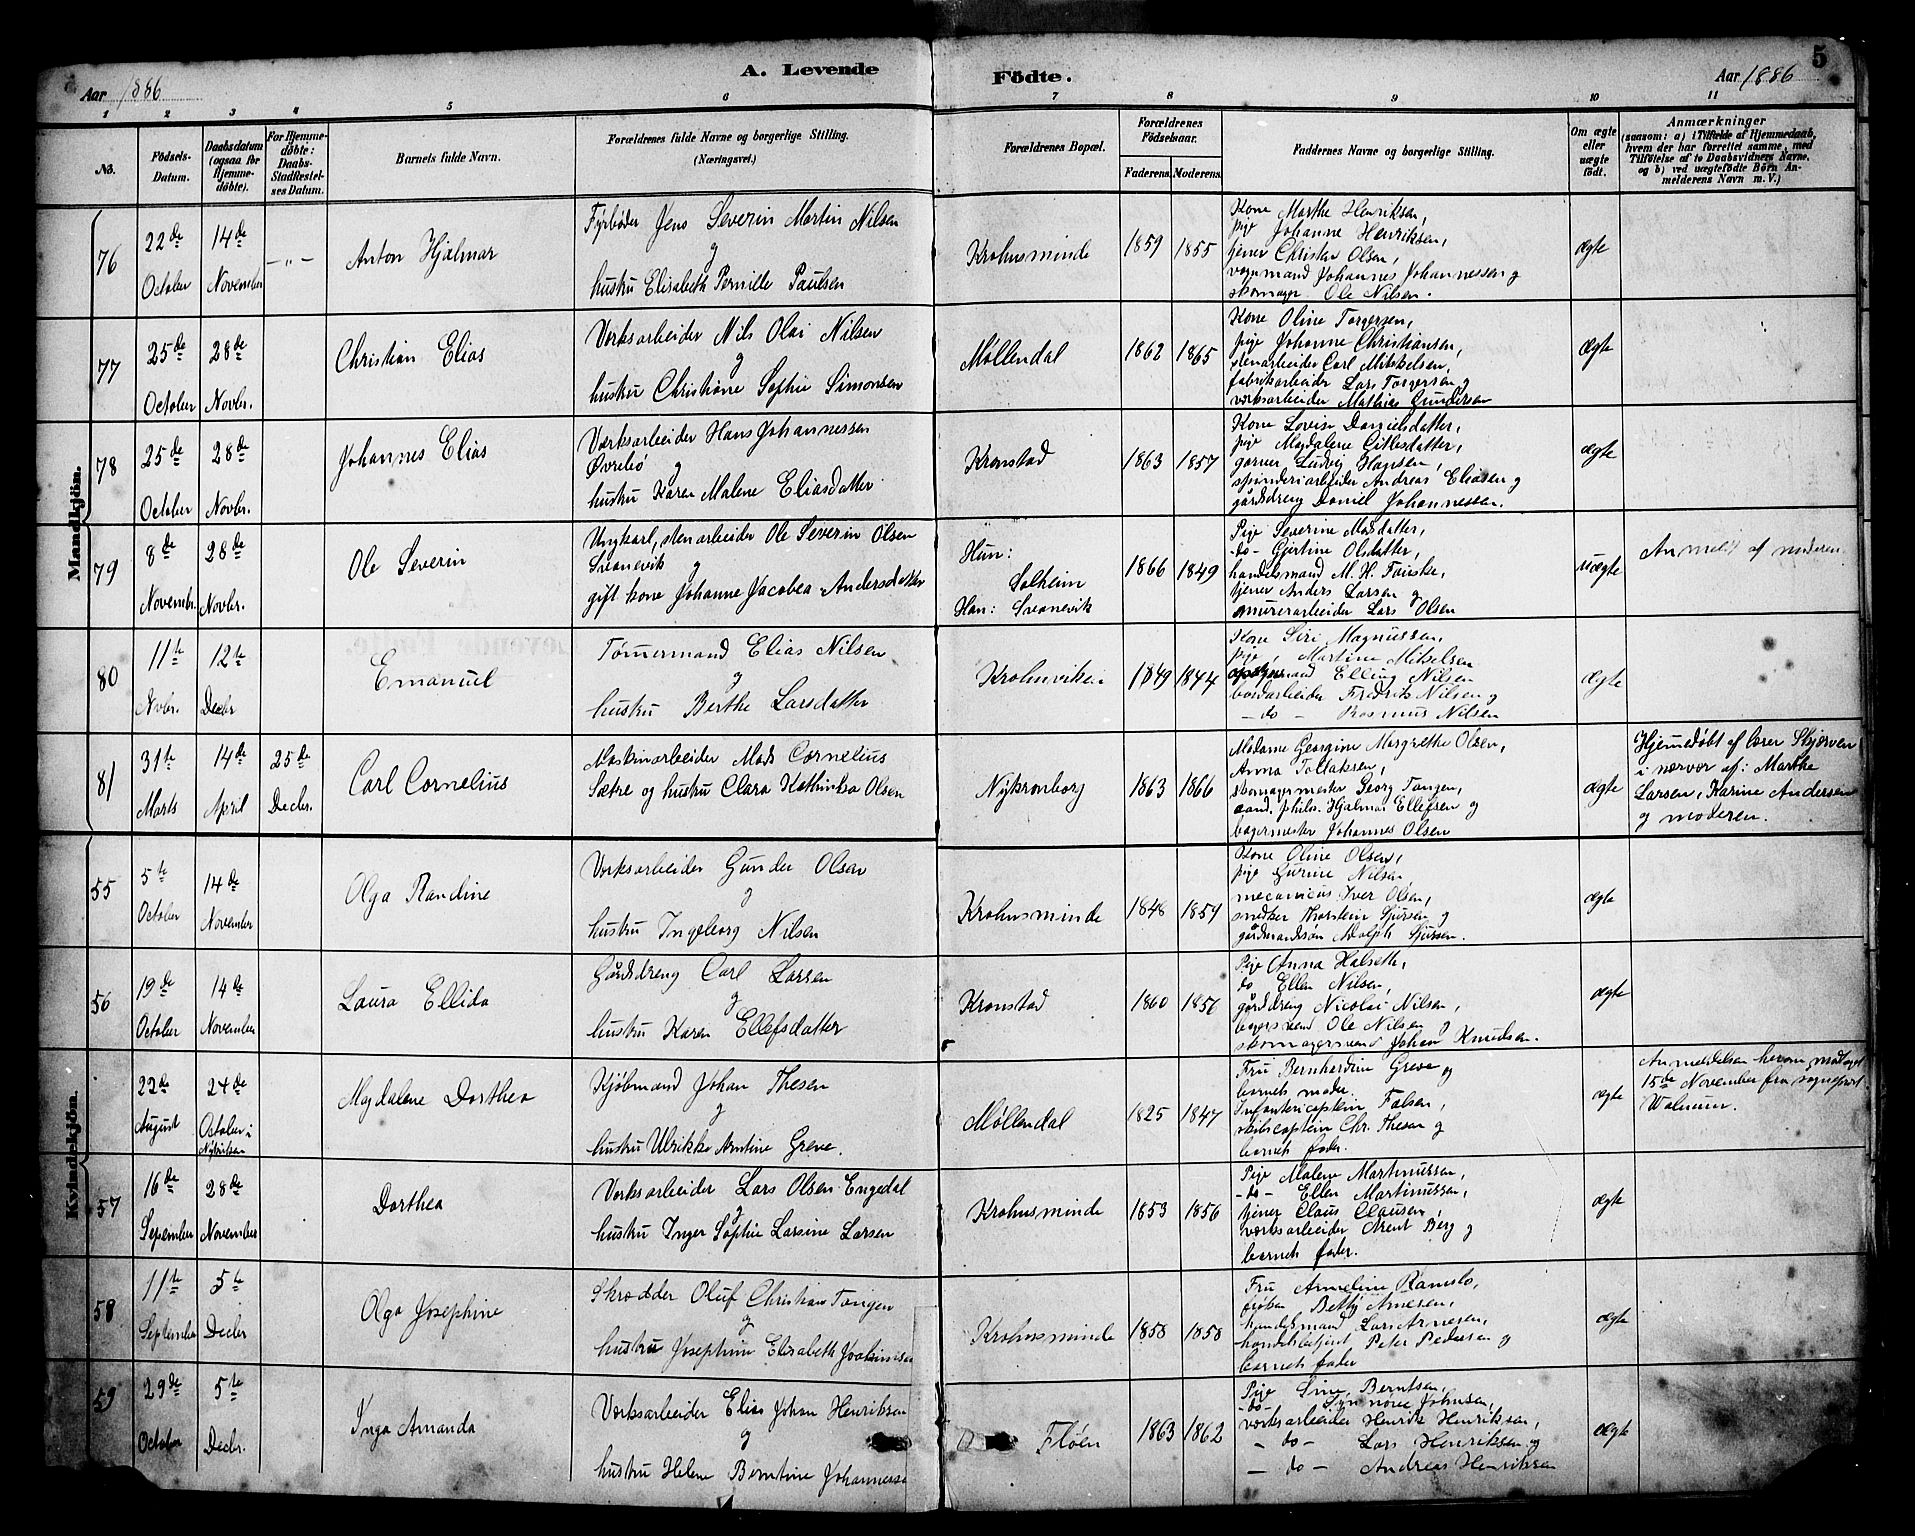 Aar 1886
A. Levende Födte.
Aar 1886
5
1 2 3 4 5 6 7 8 9 10 11
No.
Födsels-Datum.
Daabsdatum (ogsaa for Hjemme-döbte).
For Hjemme-döbte: Daabs-Stadfæstel-ses Datum.
Barnets fulde Navn.
Forældrenes fulde Navne og borgerlige Stilling.
(Næringsvei.)
Forældrenes Bopæl.
Forældrenes Födselsaar.
Faderens. Moderens.
Faddernes Navne og borgerlige Stilling.
Om ægte eller uægte födt.
Anmærkninger
(saasom: a) i Tilfælde af Hjemmedaab, hvem der har forrettet samme, med Tilföielse af to Daabsvidners Navne, og b) ved uægtefödte Börn An-melderens Navn m. V.)
Mandkjön.
76
22de October
14de November
— „ —
Anton Hjalmar
Fyrbøder Jens Severin Martin Nilsen
og
hustru Elisabeth Pernille Paulsen
Krohnsminde
1859 1855
Kone Marthe Henriksen,
pige Johanne Henriksen,
tjener Christen Olsen,
vognmand Johannes Johannessen og
skomager Ole Nilsen.
ægte
77
25de October
28de Novbr.
Christian Elias
Værksarbeider Nils Olai Nilsen
og
hustru Christiane Sophie Simonsen
Møllendal
1862 1865
Kone Oline Torgersen,
pige Johanne Christiansen,
stenarbeider Carl Mikkelsen,
fabrikarbeider Lars Torgersen og
værksarbeider Mathias Gundersen
ægte
78
25de October
28de Novbr.
Johannes Elias
Værksarbeider Hans Johannessen
Øvrebø og
hustru Karen Malene Eliasdatter
Kronstad
1863 1857
Kone Lovise Danielsdatter,
pige Magdalene
garver Ludvig Hansen,
spinderiarbeider Andreas Eliasen og
gårdsdreng Daniel Johannessen.
ægte
79
8de Novembr.
28de Novbr.
Ole Severin
Ungkarl, stenarbeider Ole Severin Olsen
Svanevik og
gift kone Johanne Jacobea Andersdatter
Hun: Solheim
Han: Svanevik
1866 1849
Pige Severine Madsdatter,
—do— Gjertine Olsdatter,
handelsmand M. H.
tjener Anders Larsen og
murerarbeider Lars Olsen
uægte
Anmeldt af moderen
80
11te Novbr.
12te Decbr
Emanuel
Tømmermand Elias Nilsen
og
hustru Berthe Larsdatter
Krohnviken
1849 1844
Kone Siri Magnussen,
pige, Martine Mikelsen
Elling Nilsen
bordarbeider Fredrik Nilsen og
— do — Rasmus Nilsen
ægte
81
31te Marts
14de April
25de Decbr.
Carl Cornelius
Maskinarbeider Mads Cornelius
Sætre og hustru Clara Kathinka Olsen
Nykronborg
1863 1866
Madame Georgine Margrethe Olsen,
Anna Tollaksen,
skomagermester Georg Tangen,
cand. philos. Hjalmar Ellefsen og
bagermester Johannes Olsen
ægte
Hjemmedøbt af lærer Skjerven
i nærvær af: Marthe
Larsen, Karine Andersen
og moderen.
Kvindekjön.
55
5te October
14de November
Olga Randine
Værksarbeider Gunder Olsen
og
hustru Ingeborg Nilsen
Krohnsminde
1848 1859
Kone Oline Olsen,
pige Gurine Nilsen
mecanicus Iver Olsen,
snedker Thorstein Sjursen og
gårdmandssøn Adolph Sjursen.
ægte
56
19de October
14de November
Laura Ellida
Gårdsdreng Carl Larsen
og
hustru Karen Ellefsdatter
Kronstad
1860 1856
Pige Anna Halseth,
do Ellen Nilsen,
gårdsdreng Nicolai Nilsen,
bagersvend Ole Nilsen og
skomagersvend Johan Knudsen.
ægte
22de August
24de October i
Magdalene Dorthea
Kjøbmand Johan Thesen
og
hustru Ulrikke Arntine Greve.
Møllendal
1825 1847
Fru Bernhardine Greve og
barnets moder.
Infantericaptein Falsen,
skibscaptein Chr. Thesen og
barnets fader.
ægte
Anmeldelsen herom modtaget
15de November fra sognepræst
Walnum.
57
16de September
28de November
Dorthea
Værksarbeider Lars Olsen Engedal
og
hustru Inger Sophie Larsine Larsen
Krohnsminde
1853 1856
Pige Malene Martinussen,
—do— Ellen Martinussen,
tjener Claus Clausen,
værksarbeider Arent Berg og
barnets fader.
ægte
58
11te September
5te Decbr
Olga Josephine
Skrædder Oluf Christian Tangen
og
hustru Josephine Elisabeth Joakimsen
Krohnsminde
1858 1858
Fru Armeline Ramslo,
frøken Betty Arnesen,
handelsmand Lars Arnesen,
handelsbetjent Peter Pedersen og
barnets fader
ægte
59
29de October
5te Decbr.
Inga Amanda
Værksarbeider Elias Johan Henriksen
og
hustru Helene Berntine Johannessen
Fløen
1863 1862
Pige Sine Berntsen,
—do— Synnøve Johnsen,
værksarbeider Henrik Henriksen,
— do — Lars Henriksen og
— do — Andreas Henriksen
ægte